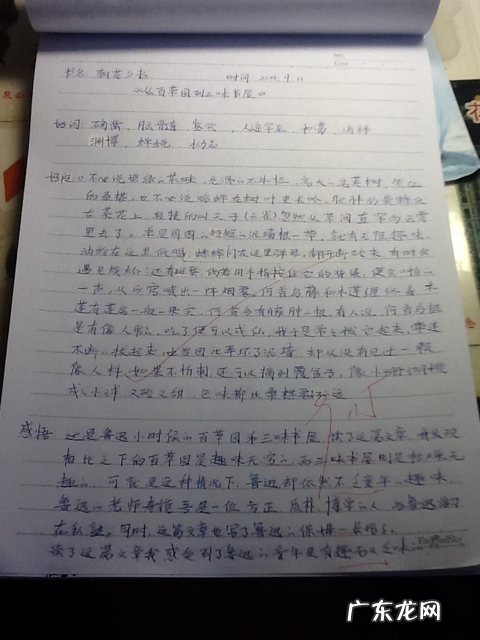 书名 朝花夕拾 时间: 2014.9.11
《从百草园到三味书屋》
好词 确凿 臃肿 人迹罕至 和蔼
渊博 蝉蜕
好句: 不必说碧绿的菜畦,光滑的石井栏,高大的皂荚树,紫红
的桑椹,也不必说鸣蝉在树叶里长吟,肥胖的黄蜂伏
在菜花上,轻捷的叫天子(云雀)忽然从草间直窜向云霄
里去了。单是周围的短短的泥墙根一带,就有无限趣味,
油蛉在这里低唱,蟋蟀们在这里弹琴。翻开断砖来,有时会
遇见蜈蚣;还有斑蝥,倘若用手指按住它的脊梁,便会啪的
一声,从后窍喷出一阵烟雾。何首乌藤和木莲藤缠络着,木
莲有莲房一般的果实,何首乌有臃肿的根。有人说,何首乌根
是有像人形的,吃了便可以成仙,我于是常常拔它起来,牵连
不断的拔起来,也曾因此弄坏了泥墙,却从没有见过一颗
像人样。如果不怕刺,还可以摘到覆盆子,像小珊瑚珠攒
成的小球,又酸又甜,色味都比桑椹要好的远
感悟: 这是鲁迅小时候的百草园和三味书屋,读了这篇文章,我发现
相比之下的百草园是趣味无穷的,而三味书屋则是枯燥无
趣的,可就是这种情况下,鲁迅却依然不乏童年的趣味,
鲁迅的老师寿镜吾是一位方正、质朴、博学的人
在私塾。同时,这篇文章也写了鲁迅的保姆—长妈妈。
读了这篇文章我感受到了鲁迅的童年是有趣而又乏味的。
广东龙网